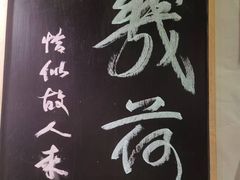 荷
恰似故人来